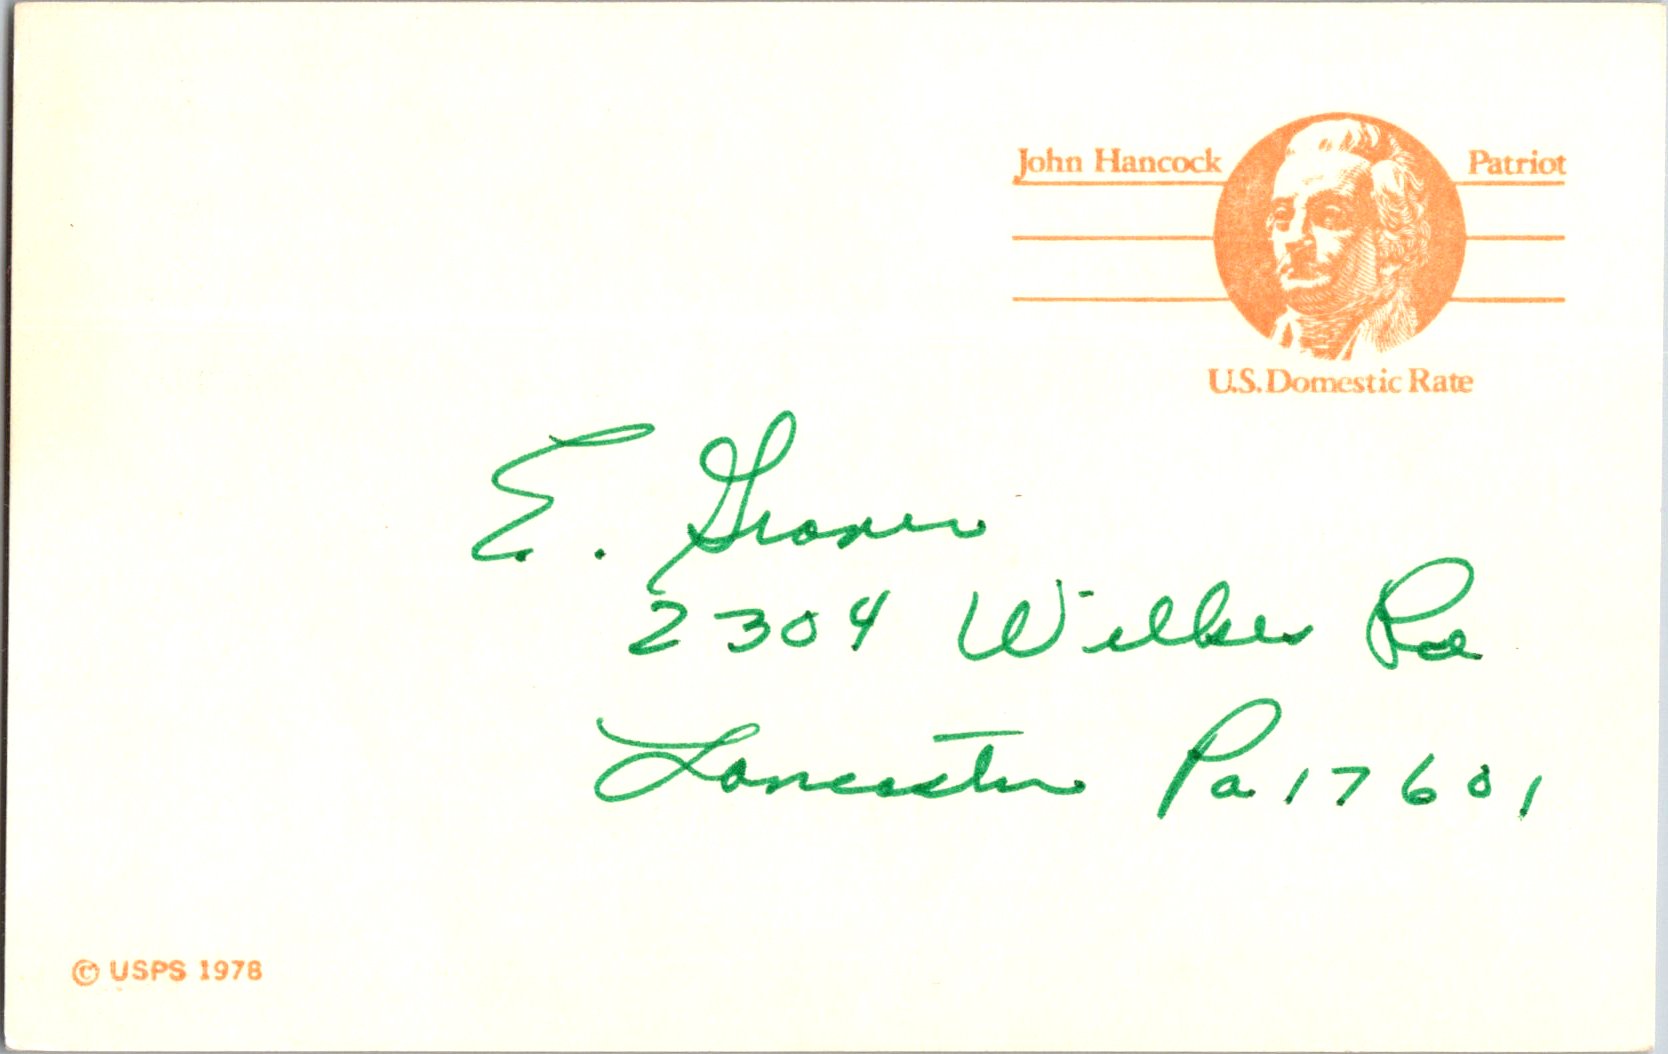 John Hancock Patriot
U.S. Domestic Rate
E.
2304 Rd
Lancaster Pa 17601
© USPS 1978